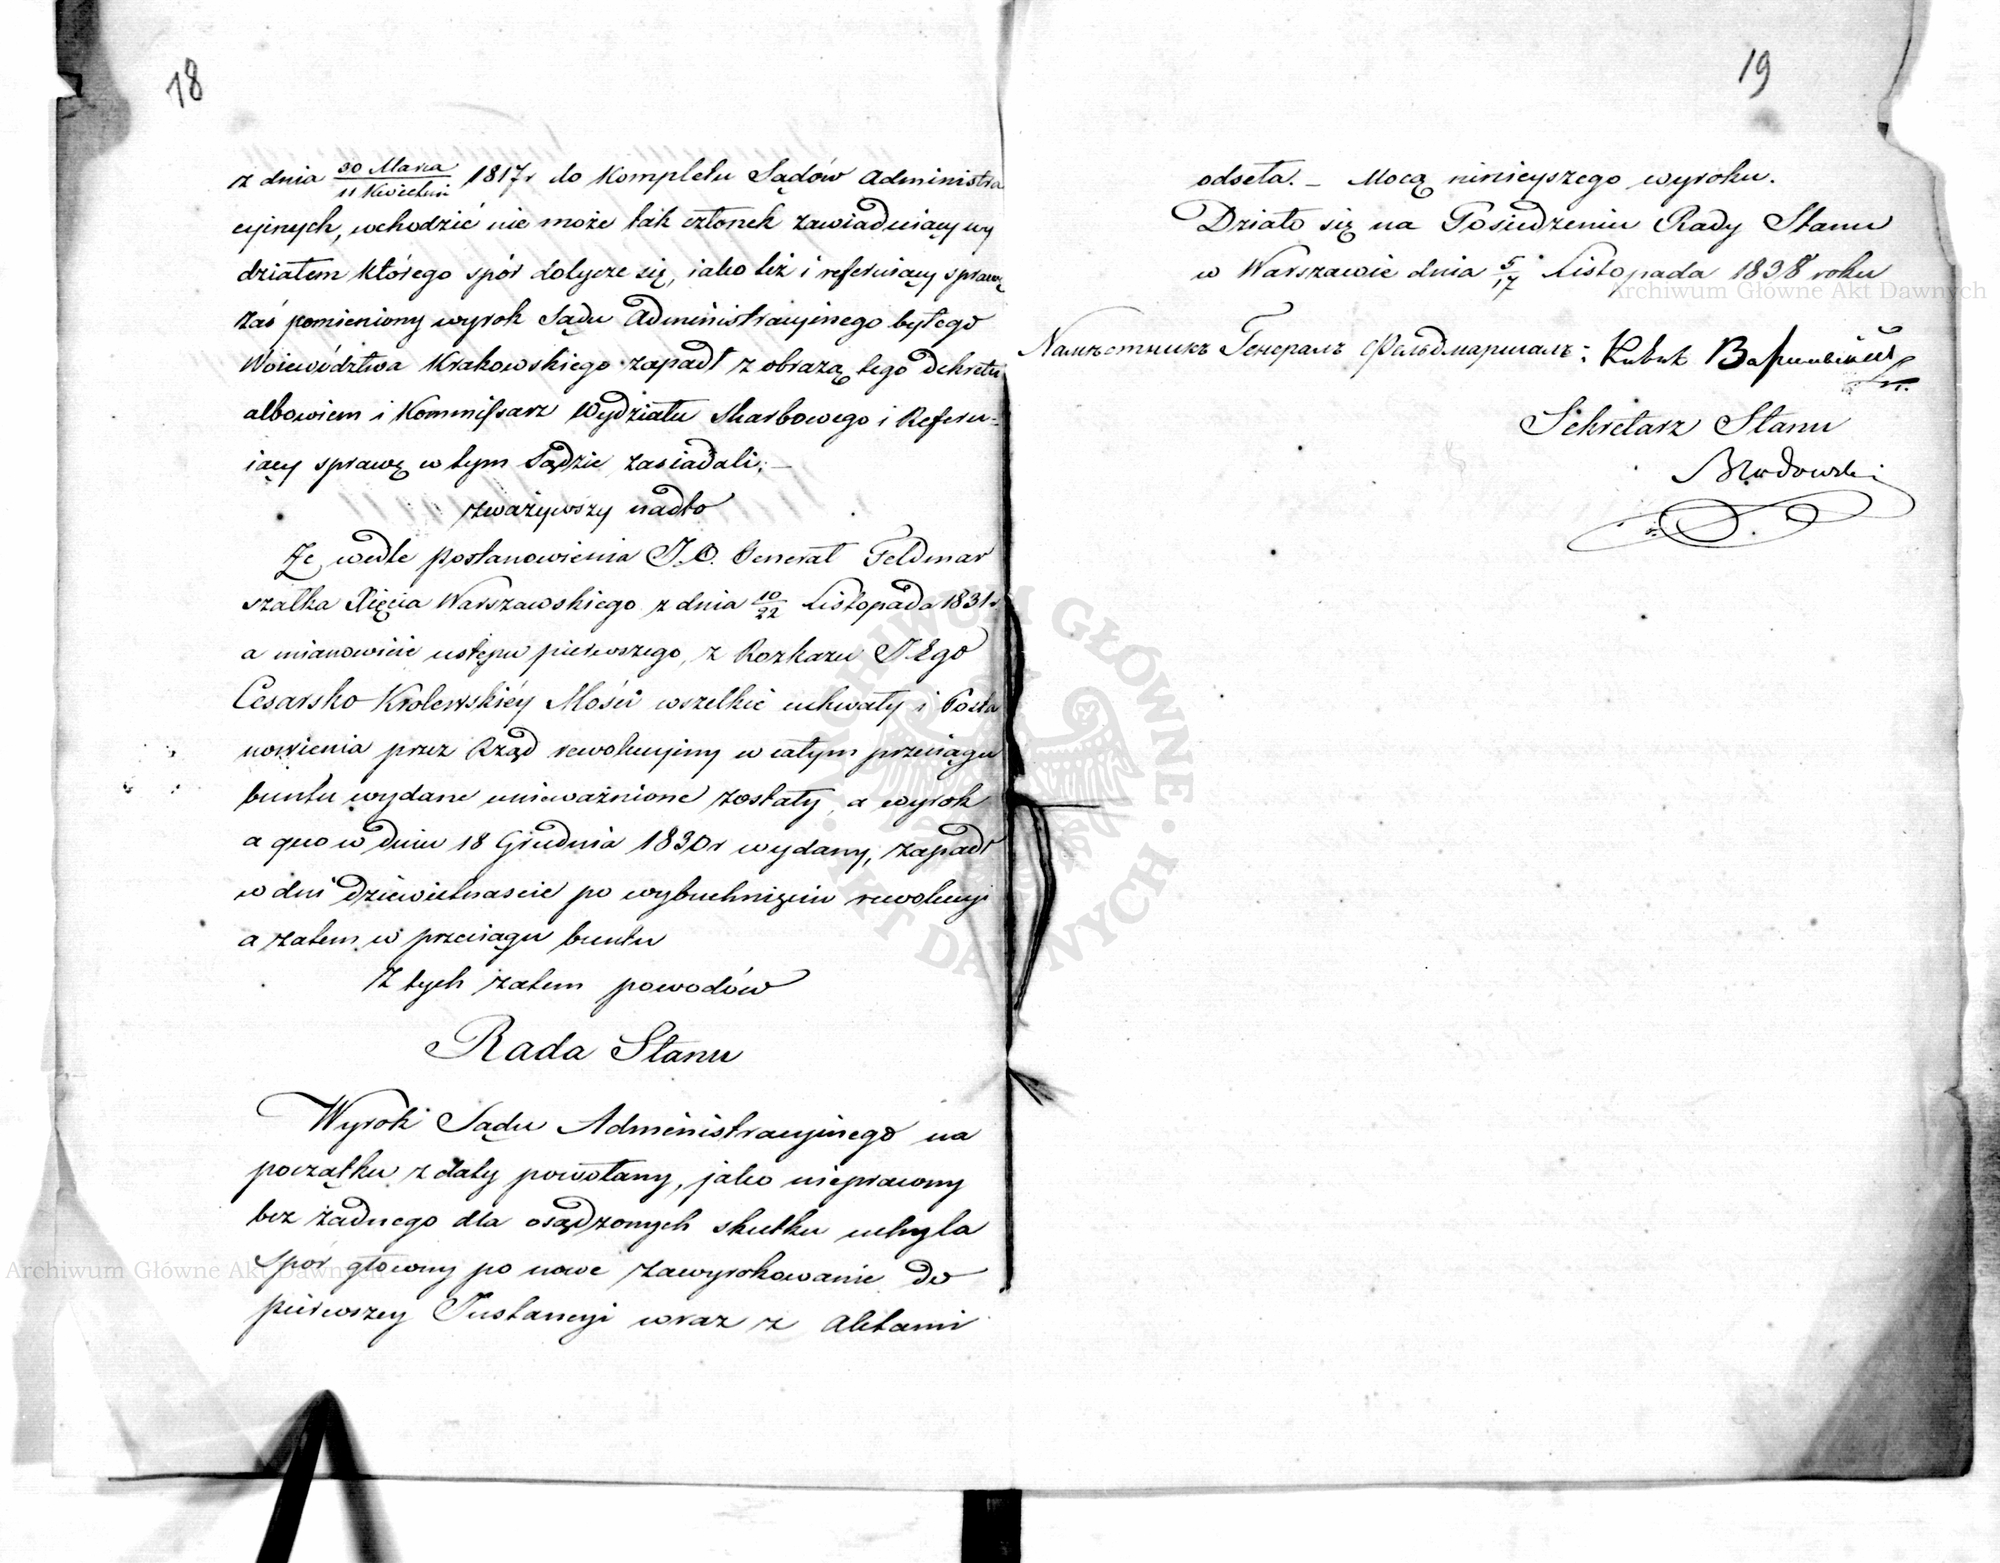 18
z dnia 30 Marca / 11 Kwietni 1817 r do Kompletu Sądów Administra
cyjnych, wchodzić nie może tak członek zawiaduiący wy
działem którego spór dotycze się, iako też i referuiący sprawę
zaś pomieniony wyrok Sądu Administracyjnego byłego
Woiewództwa Krakowskiego zapadł z obrazą tego dekretu
albowiem i Kommissarz Wydziału Skarbowego i Referu-
iący sprawę w tym Sądzie zasiadali; —
zważywszy nadto
Że wedle postanowienia J.O. Generał Feldmar
szałka Xięcia Warszawskiego z dnia 10/22 Listopada 1831 r
a mianowicie ustępu pierwszego, z Rozkazu JEgo
Cesarsko Krolewskiéy Mości wszelkie uchwały i Posta
nowienia przez Rząd rewolucyiny w całym przeciągu
buntu wydane unieważnione zostały, a wyrok
a quo w dniu 18 Grudnia 1830 r wydany, zapadł
w dni dziewietnascie po wybuchnięciu rewolucyi
a zatem w przeciągu buntu
Z tych zatem powodów
Rada Stanu
Wyrok Sądu Administracyinego na
początku z daty powołany, jako nieprawny
bez żadnego dla osądzonych skutku uchyla
Spór główny po nowe zawyrokowanie do
pierwszey Instancyi wraz z Aktami
19
odseła. — Mocą ninieyszego wyroku.
Działo się na Posiedzeniu Rady Stanu
w Warszawie dnia 5/17 Listopada 1838 roku
Намѣстникъ Генералъ Фельдмаршалъ:
Sekretarz Stanu
Archiwum Główne Akt Dawnych
Archiwum Główne Akt Dawnych
ARCHIWUM GŁÓWNE AKT DAWNYCH